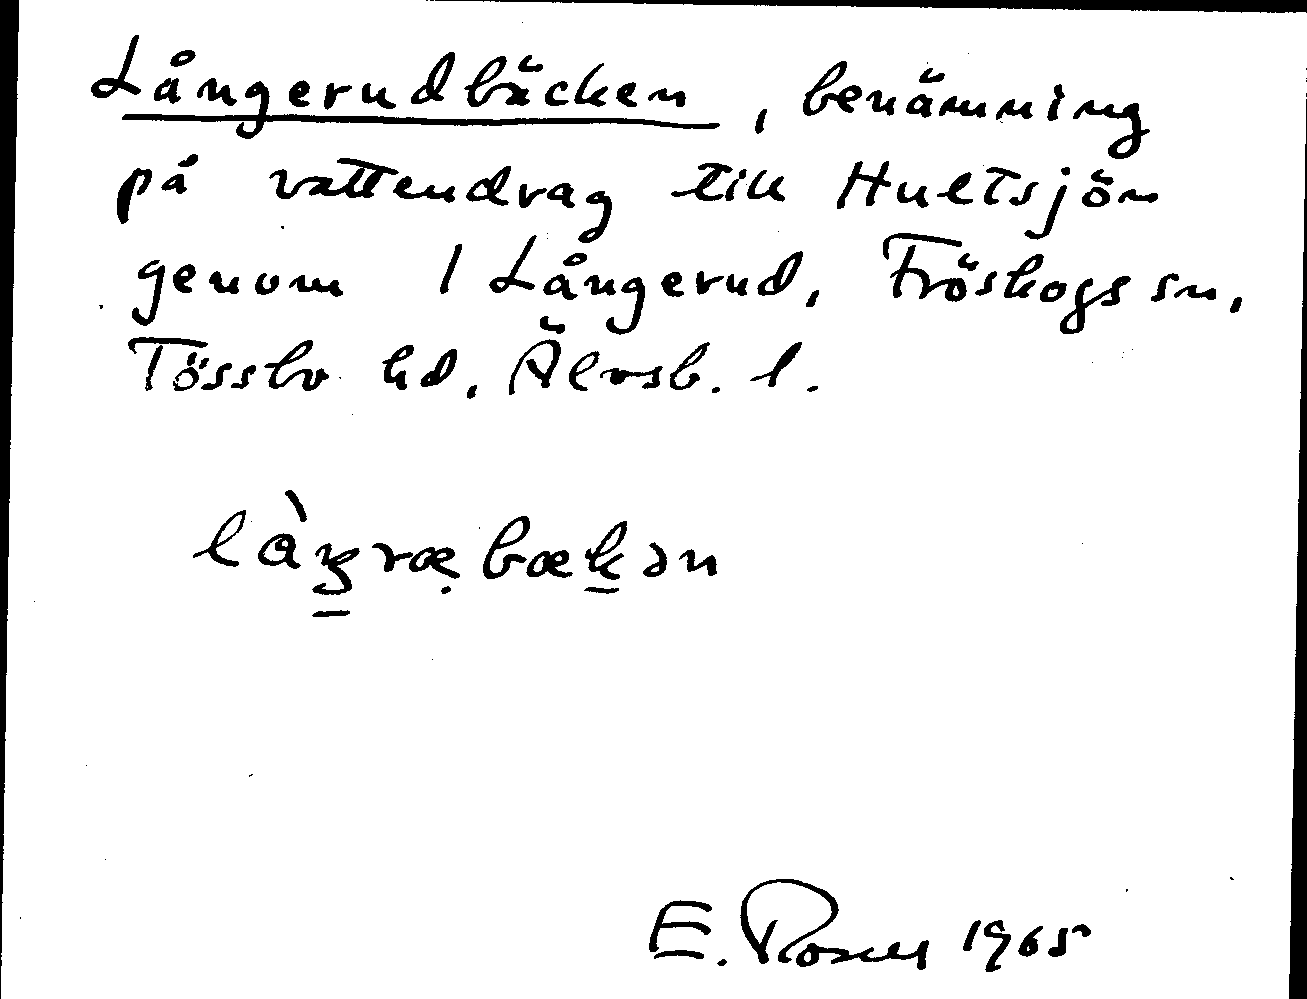 Långerudbäcken, benämning
på vattendrag till Hultsjön
genom 1 Långerud, Fröskogs sn,
Tössbo hd, Älvsb. l.
làŋræ̣bæḵən
E. Rosell 1965